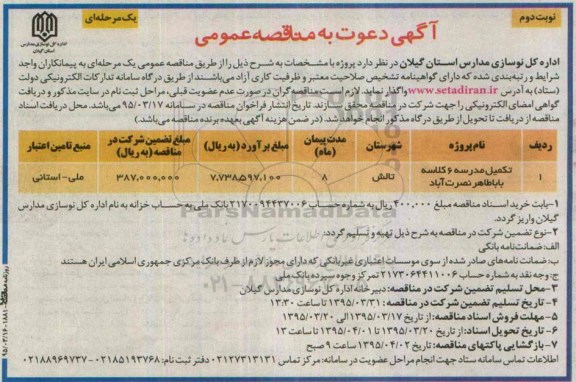 نوبت دوم
یک مرحله‌ای
آگهی دعوت به مناقصه عمومی
اداره کل نوسازی مدارس
استان گیلان
اداره کل نوسازی مدارس استان گیلان در نظر دارد پروژه با مشخصات به شرح ذیل را از طریق مناقصه عمومی یک مرحله‌ای به پیمانکاران واجد
شرایط و رتبه‌بندی شده که دارای گواهینامه تشخیص صلاحیت معتبر و ظرفیت کاری آزاد می‌باشند از طریق درگاه سامانه تدارکات الکترونیکی دولت
(ستاد) به آدرس www.setadiran.ir واگذار نماید. لازم است مناقصه گران در صورت عدم عضویت قبلی، مراحل ثبت نام در سایت مذکور و دریافت
گواهی امضای الکترونیکی را جهت شرکت در مناقصه محقق سازند. تاریخ انتشار فراخوان مناقصه در سامانه ۹۵/۰۳/۱۷ می‌باشد. محل دریافت اسناد
مناقصه از دریافت تا تحویل از طریق درگاه مذکور انجام خواهد شد. (در ضمن هزینه آگهی بعهده برنده مناقصه می‌باشد.)
ردیف نام پروژه شهرستان مدت پیمان (ماه) مبلغ برآورد (به ریال) مبلغ تضمین شرکت در مناقصه (به ریال) منبع تامین اعتبار
۱ تکمیل مدرسه ۶ کلاسه باباطاهر نصرت آباد تالش ۸ ۷,۷۳۸,۵۹۷,۱۰۰ ۳۸۷,۰۰۰,۰۰۰ ملی-استانی
۱-بابت خرید اسناد مناقصه مبلغ ۴۰۰,۰۰۰ ریال به شماره حساب ۲۱۷۰۰۹۴۴۳۷۰۰۶ بانک ملی به حساب خزانه به نام اداره کل نوسازی مدارس
گیلان واریز گردد.
۲-نوع تضمین شرکت در مناقصه به شرح ذیل تهیه و تسلیم گردد:
الف: ضمانت‌نامه بانکی
ب: ضمانت نامه‌های صادر شده از سوی موسسات اعتباری غیربانکی که دارای مجوز لازم از طرف بانک مرکزی جمهوری اسلامی ایران هستند
ج: وجه نقد به شماره حساب ۲۱۷۳۰۶۴۴۱۱۰۰۶ تمرکز وجوه سپرده بانک ملی
۳-محل تسلیم تضمین شرکت در مناقصه: دبیرخانه اداره کل نوسازی مدارس گیلان
۴- تاریخ تسلیم تضمین شرکت در مناقصه: ۱۳۹۵/۰۳/۳۱ تا ساعت ۱۳:۳۰
۵- مهلت فروش اسناد مناقصه: از تاریخ ۱۳۹۵/۰۳/۱۷ الی ۱۳۹۵/۰۳/۲۰
۶- تاریخ تحویل اسناد: از تاریخ ۱۳۹۵/۰۳/۲۰ تا ۱۳۹۵/۰۴/۰۱ تا ساعت ۱۳
۷- بازگشایی پاکتهای مناقصه: تاریخ ۱۳۹۵/۰۴/۰۲ ساعت ۹ صبح
اطلاعات تماس سامانه ستاد جهت انجام مراحل عضویت در سامانه: مرکز تماس ۰۲۱۲۷۳۱۳۱۳۱ دفتر ثبت نام: ۰۲۱۸۵۱۹۳۷۶۸-۰۲۱۸۸۹۶۹۷۳۷
ParsNamadData